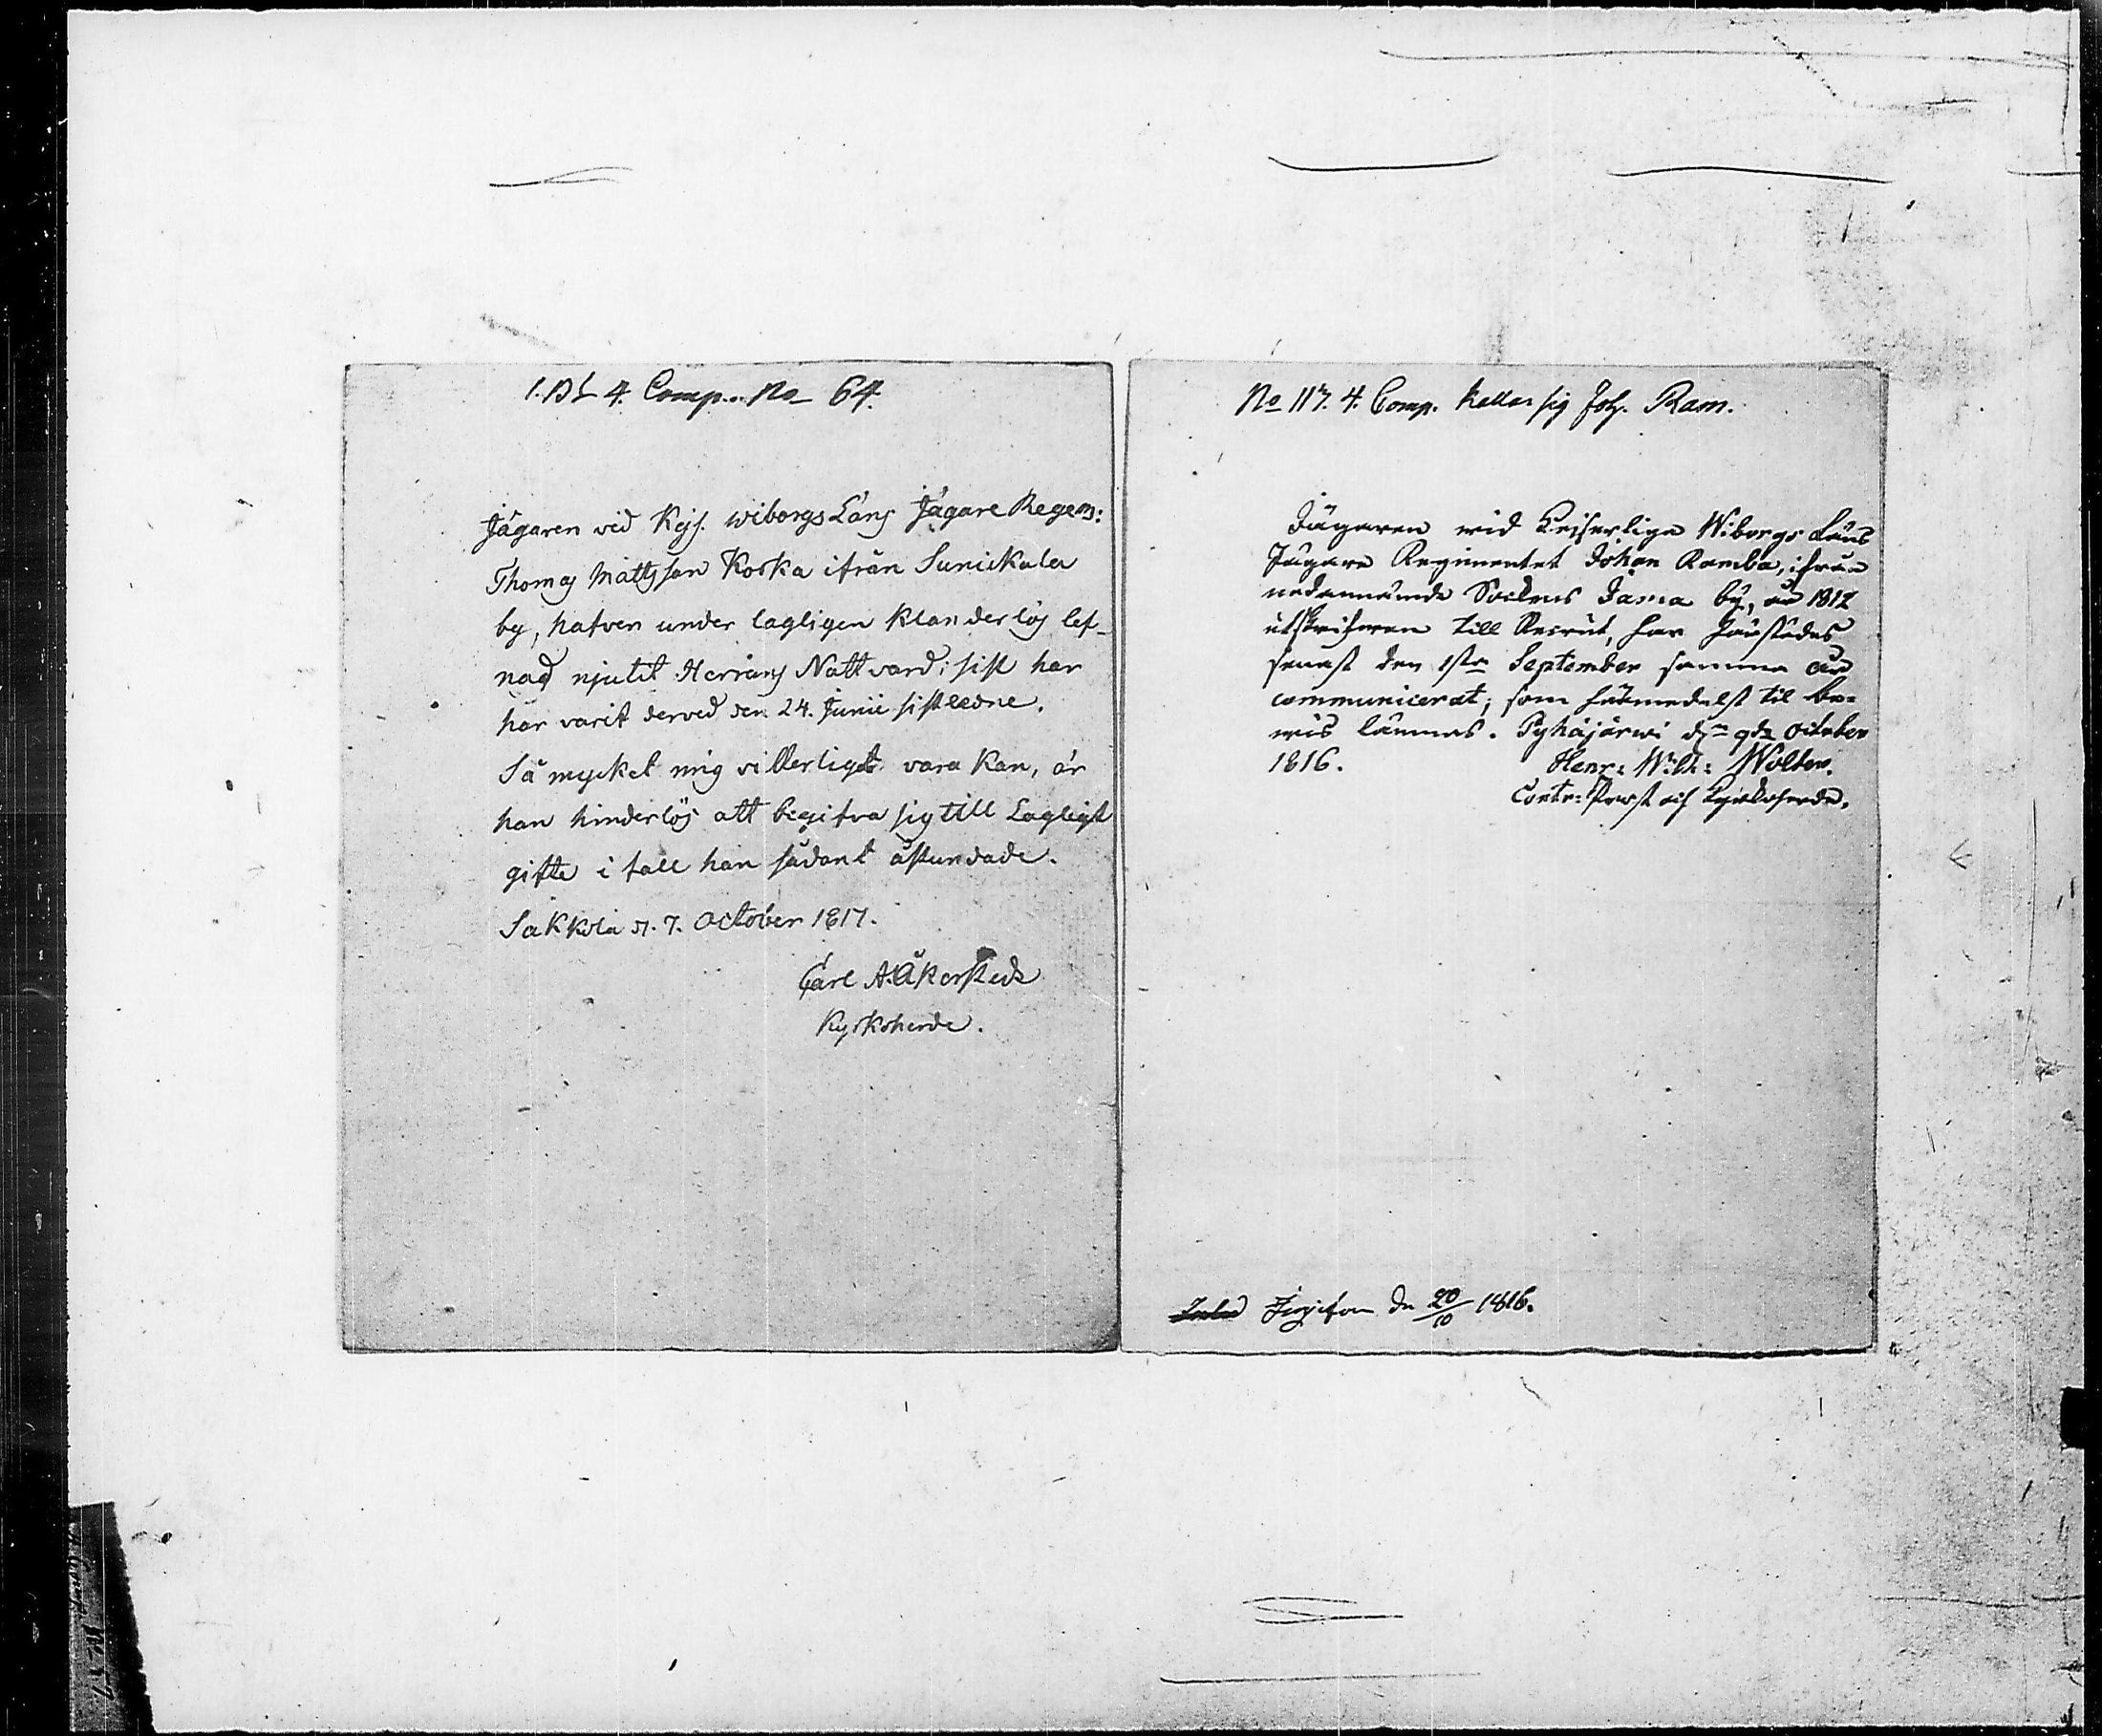 1. Bt 4. Comp. No 64.
Jägaren vid Kejs. Wiborgs Läns Jägare Regem:
Thomas Mattsson Koska ifrån Sunikala
by, hafver under lagligen klanderlös lef-
nad njutit Herrans Nattvard; sist har
han varit derved den 24. Junii sistledne.
Så mycket mig vitterligt vara kan, är
han hinderlös att begifva sig till Lagligt
gifte i fall han sådant åstundade.
Sakkola d. 7. October 1817.
Carl A. Åkerstedt
Kyrkoherde.
No 117. 4. Comp. kallar sig Joh. Ram.
Jägaren wid Keiserliga Wiborgs Läns
Jägare Regimentet Johan Ramba, ifrån
nedannämde Sockens Jama by, år 1812
utskrifven till Recrut, har härstädes
senast den 1sta September samma år
communicerat; som härmedelst til be-
wis lämnas. Pyhäjärwi dn 9da October
1816.
Henr: Wilh: Wolter.
Contr: Prost och Kyrkoherde.
Ingifven dn 20/10 1816.